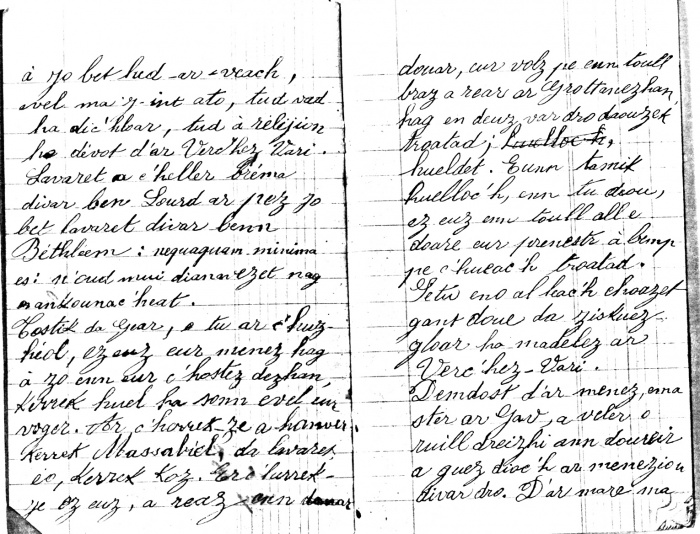 à zo bet hed-ar-veach,
evel ma z-int ato, tud vad
ha dic'hloar, tud à relijiun
ha divot d'ar Verc'hez Vari.
Lavaret a c'heller brema
divar ben Lourd ar pez zo
bet lavaret divar benn
Bethleem : nequaquam minima
es : n'oud mui dianavezet nag
ankounac'heat.
Tostik da Gear, e tu ar c'huz-
héol, ez euz eur menez hag
à zo enn eur c'hostez dezhan,
kerrek huel ha sonn evel eur
voger. Ar c'herrek-ze a hanver
Kerrek Massabiel, da lavaret
eo, Kerrek Koz. Er c'herrek-
ze ez euz, a reaz enn douar
douar, eur volz pe enn toull
braz a rear ar Grottanezhan,
hag en deuz var dro daouzek
troatad, huelloc'h,
hueldet. Eunn tamik
huelloc'h, enn tu deou,
ez euz enn toull all e
doare eur prenestr à bemp
pe c'hueac'h troatad.
Setu eno al leac'h choazet
gant Doue da ziskuez
gloar ha madelez ar
Verc'hez-Vari.
Demdost d'ar menez, ema
ster ar Gav, a veler o
ruill dreizhi ann doureier
a guez dioc'h ar meneziou
divar dro. D'ar mare ma